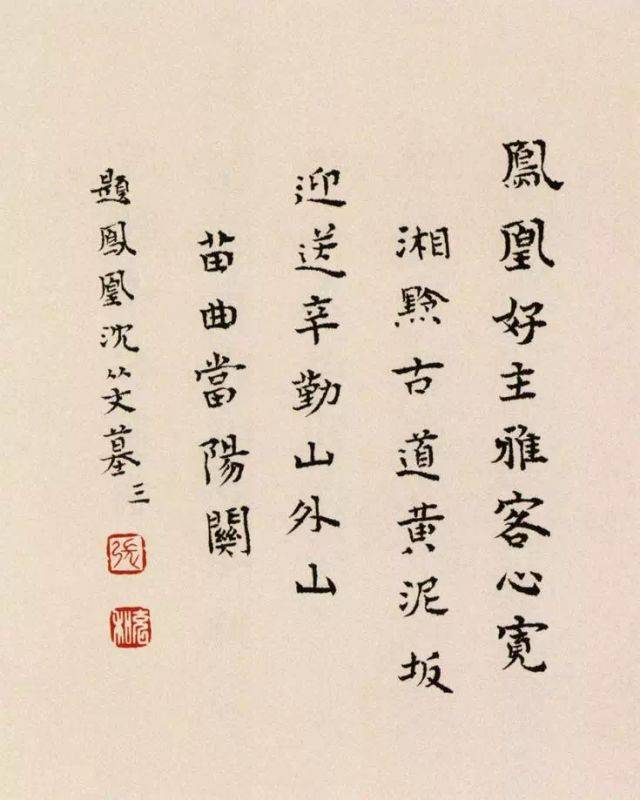 鳳凰好主雅客心寬
湘黔古道黄泥坂
迎送辛勤山外山
苗曲當陽關
題鳳凰沈从文墓三
張
充和